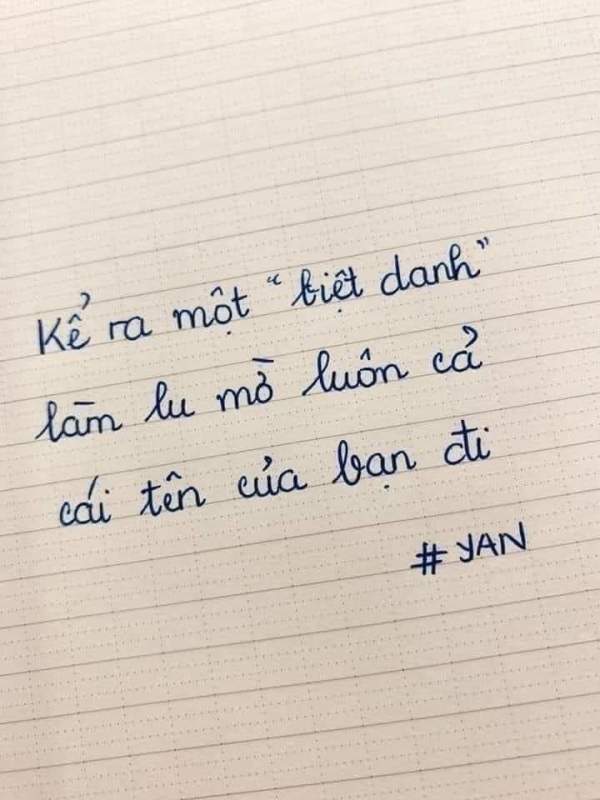 Kể ra một "biệt danh"
làm lu mờ luôn cả
cái tên của bạn đi
#YAN